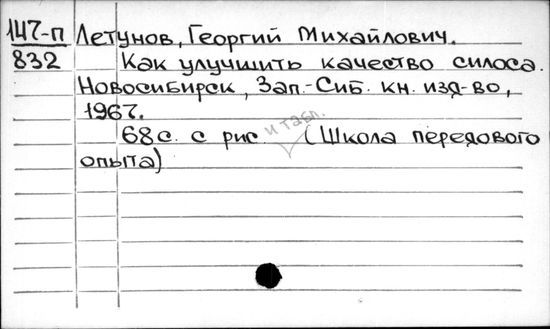 147-п Летунов, Георгий Михайлович.
832 Как улучшить качество силоса.
Новосибирск, Зап.-Сиб. кн. изд-во,
1967.
68 с. с рис. и табл. (Школа передового
опыта)